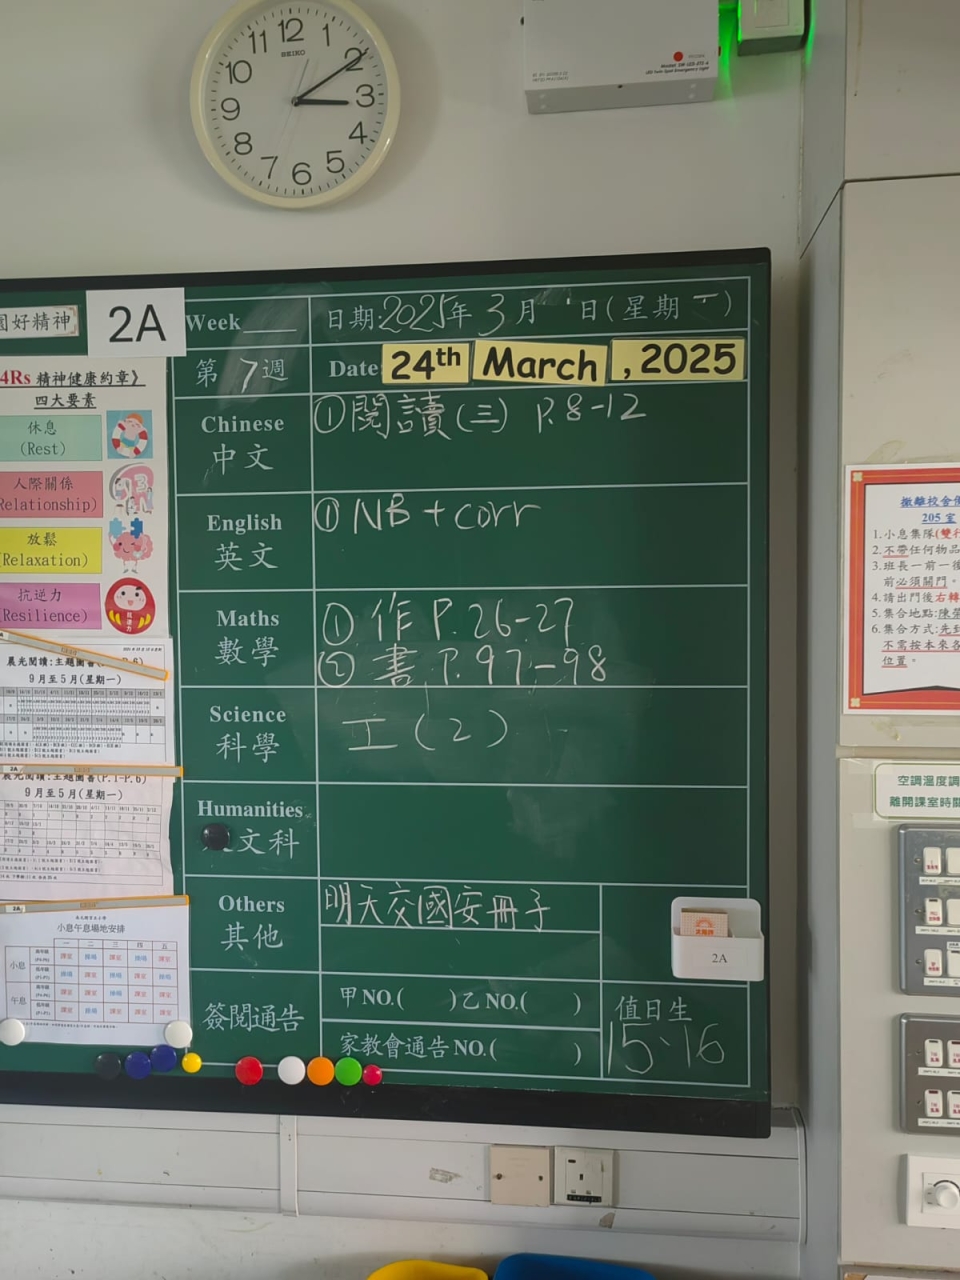 12 1 2 3 4 5 6 7 8 9 10 11
SEIKO
園好精神
2A
Week
日期:2025年3月 日(星期一)
第7週
Date:
24th March , 2025
4Rs 精神健康約章》
四大要素
休息
(Rest)
人際關係
Relationship)
放鬆
(Relaxation)
抗逆力
(Resilience)
Chinese
中文
①閱讀(三) P.8-12
English
英文
①NB+corr
Maths
數學
①作 P.26-27
②書 P.97-98
Science
科學
工(2)
Humanities
文科
Others
其他
明天交國安冊子
2A
簽閱通告
甲NO.( )乙NO.( )
家教會通告NO.( )
值日生
15、16
晨光閱讀:主題圖書
P.6)
9月至5月(星期一)
2A
晨光閱讀:主題圖書(P.1-P.6)
9月至5月(星期一)
小息午息場地安排
一 二 三 四 五
小息
午息
撤離校舍
205室
1.小息集隊(雙行
2.不帶任何物品
3.班長一前一後
前必須關門。
4.請出門後右轉
5.集合地點:陳
6.集合方式:先到
不需按本來各
位置。
空調溫度調
離開課室時關